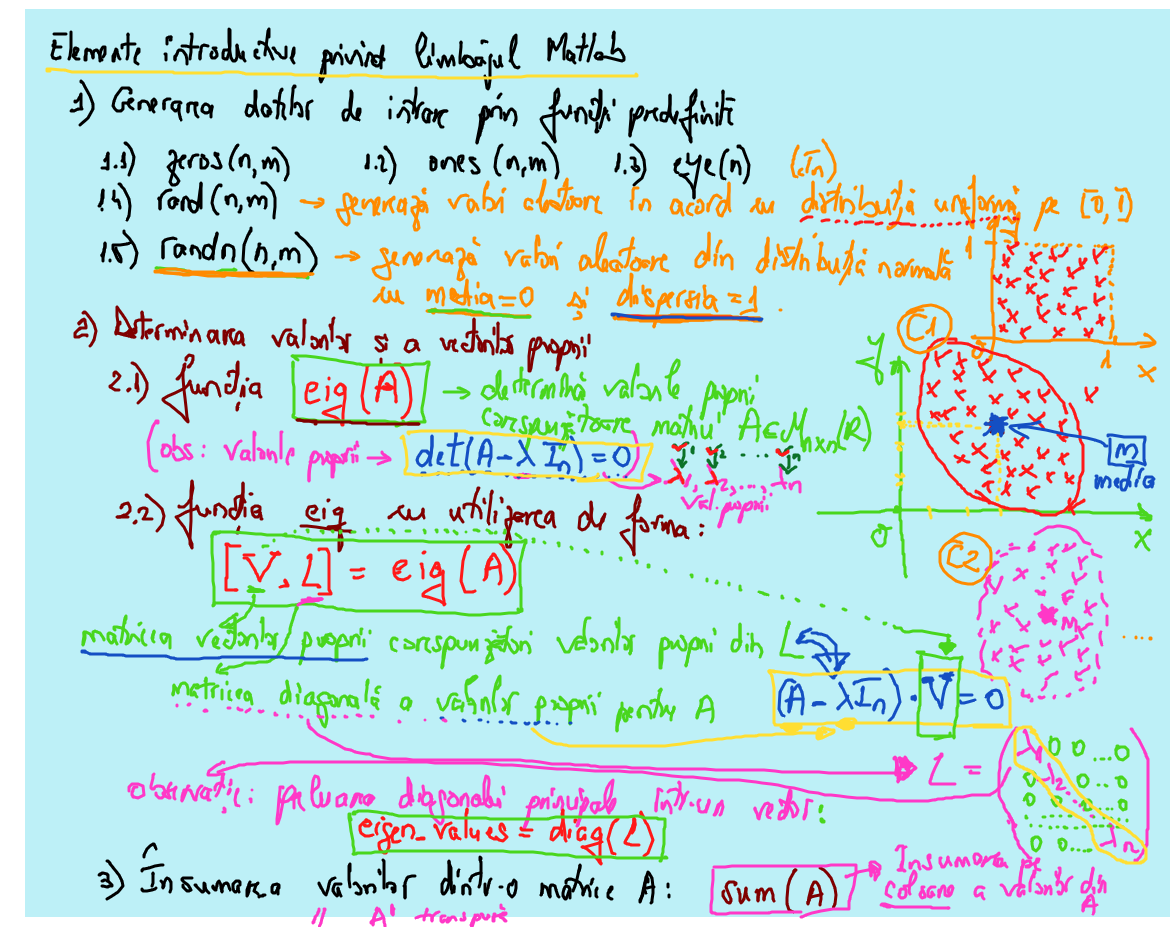 Elemente introductive privind limbajul Matlab
1) Generarea datelor de intrare prin funcții predefinite
1.1) zeros(n,m) 1.2) ones(n,m) 1.3) eye(n) (In)
1.4) rand(n,m) → generează valori aleatoare în acord cu distribuția uniformă pe [0,1]
1.5) randn(n,m) → generează valori aleatoare din distribuția normală
cu media=0 și dispersia=1.
1
0 1 x
C1
2) Determinarea valorilor și a vectorilor proprii
2.1) funcția eig(A) → determină valorile proprii
corespunzătoare matricii A∈Mnxn(R)
(obs: valorile proprii → det(A-λIn)=0) → λ1, λ2, ..., λn
val. proprii
y
m
media
0 x
2.2) funcția eig cu utilizarea de forma:
[V,L] = eig(A)
C2
m
....
matricea vectorilor proprii corespunzători valorilor proprii din L
(A-λIn)·V=0
matricea diagonală a valorilor proprii pentru A
L = (λ1 0 0 ... 0
0 λ2 ... 0
0 0 ... 0
0 0 ... λn)
observație: preluarea diagonalei principale într-un vector:
eigen_values = diag(L)
3) Însumarea valorilor dintr-o matrice A: sum(A) → Însumarea pe
coloane a valorilor din
A
// A' transpure